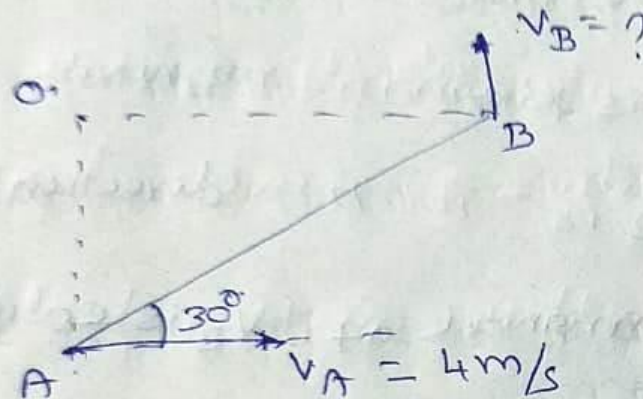 V_B = ?
O
B
30°
A
V_A = 4m/s